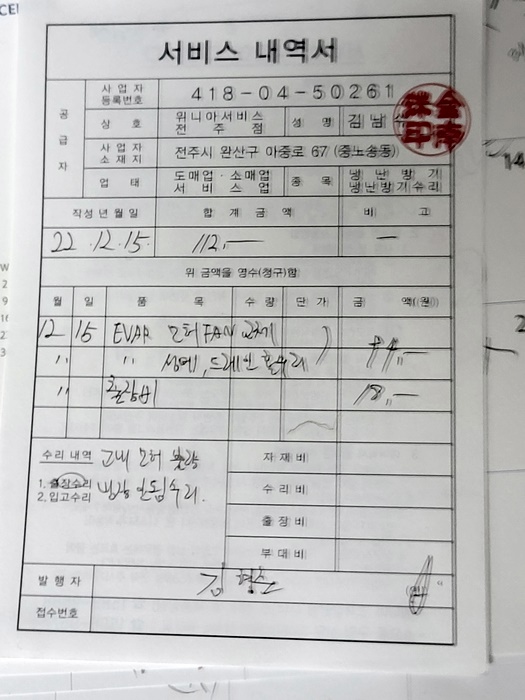 서비스 내역서
공급자
사업자
등록번호
418-04-50261
상 호
위니아서비스
전 주 점
성 명
김남
사업자
소재지
전주시 완산구 아중로 67 (중노송동)
업 태
도매업·소매업
서 비 스 업
종 목
냉 난 방 기
냉난방기수리
작성년월일
합 계 금 액
비 고
22. 12. 15.
112,—
—
위 금액을 영수(청구)함
월
일
품 목
수 량
단 가
금 액(원)
12 15 EVAR 모터 FAN 교체
〃 〃 성에, 드레인
〃 출장비 18,—
수리 내역 고내 모터 불량
1. 출장수리 냉장 안됨 수리.
2. 입고수리
자 재 비
수 리 비
출 장 비
부 대 비
발 행 자
김
접수번호